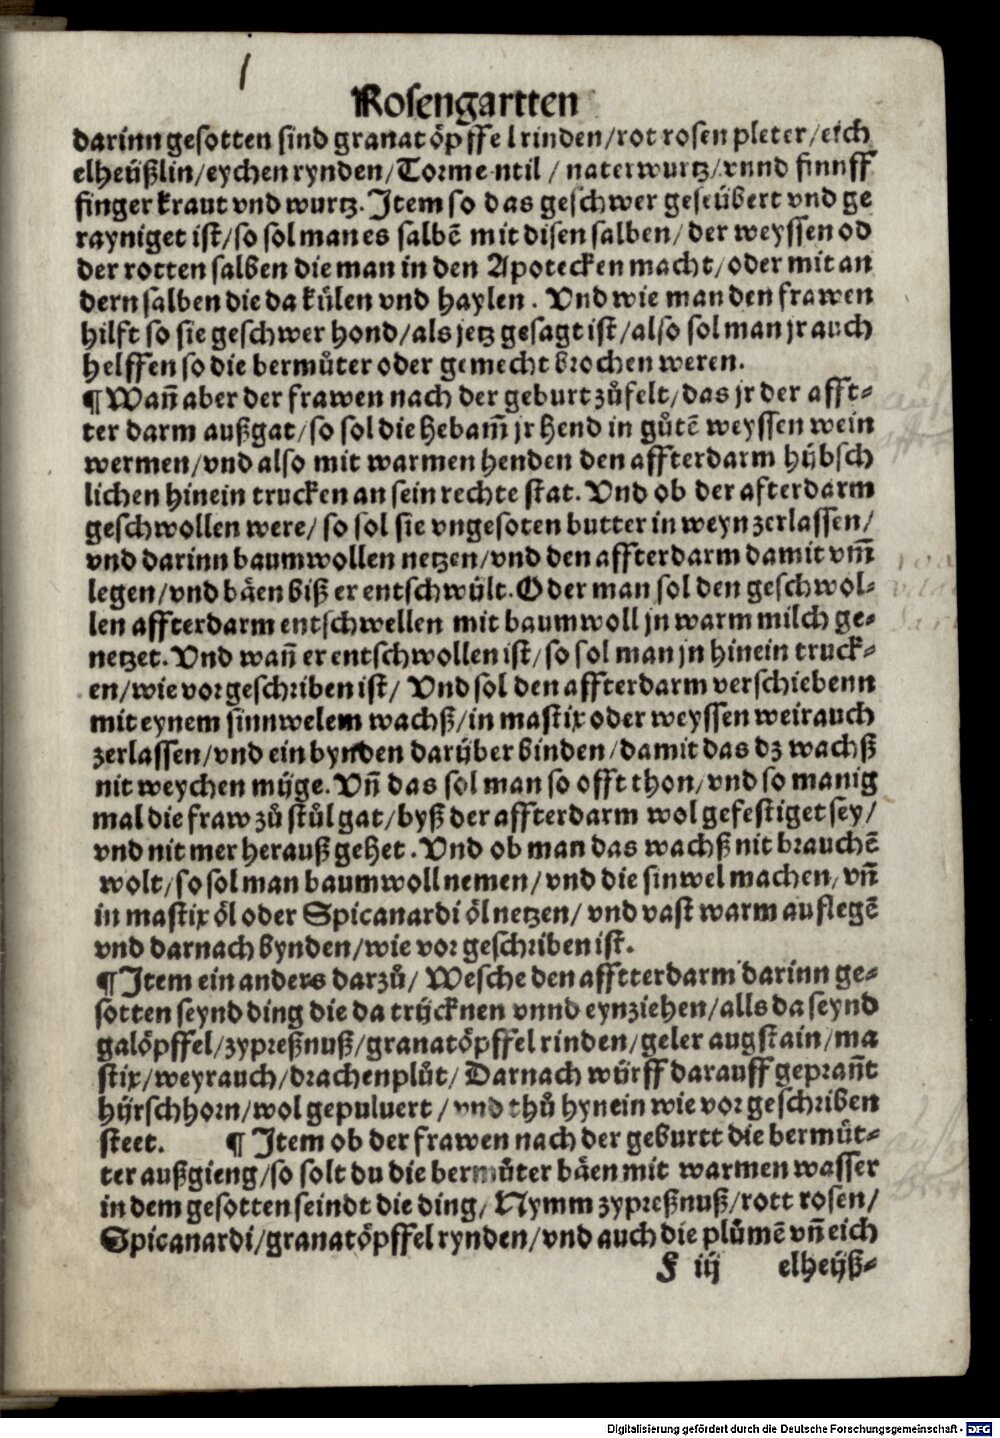 Rosengartten
darinn gesotten sind granatöpffelrinden/rot rosen pleter/eich
elheüßlin/eychen rynden/Tormentil/naterwurtz/vnnd finnff
finger kraut vnd wurtz. Item so das geschwer geseübert vnd ge
rayniget ist/so sol man es salbē mit disen salben/der weyssen od
der rotten salben die man in den Apotecken macht/oder mit an
dern salben die da külen vnd haylen. Vnd wie man den frawen
hilft so sie geschwer hond/als jetz gesagt ist/also sol man jr auch
helffen so die bermůter oder gemecht brochen weren.
¶Wañ aber der frawen nach der geburt zůfelt/das jr der afft⸗
ter darm außgat/so sol die hebam̃ jr hend in gůtē weyssen wein
wermen/vnd also mit warmen henden den affterdarm hÿbsch
lichen hinein trucken an sein rechte stat. Vnd ob der afterdarm
geschwollen were/so sol sie vngesoten butter in weyn zerlassen/
vnd darinn baumwollen netzen/vnd den affterdarm damit vm̃
legen/vnd bäen biß er entschwült. Oder man sol den geschwol⸗
len affterdarm entschwellen mit baumwoll jn warm milch ge⸗
netzet. Vnd wañ er entschwollen ist/so sol man jn hinein truck⸗
en/wie vor geschriben ist/ Vnd sol den affterdarm verschiebenn
mit eynem sinnwelem wachß/in mastix oder weyssen weirauch
zerlassen/vnd ein bynden darÿber binden/damit das dz wachß
nit weychen mÿge. Vñ das sol man so offt thon/vnd so manig
mal die fraw zů stůl gat/byß der affterdarm wol gefestiget sey/
vnd nit mer herauß gehet. Vnd ob man das wachß nit brauchē
wolt/so sol man baumwoll nemen/vnd die sinwel machen/vñ
in mastix öl oder Spicanardi öl netzen/vnd vast warm auflegē
vnd darnach bynden/wie vor geschriben ist.
¶Item ein anders darzů/ Wesche den afftterdarm darinn ge⸗
sotten seynd ding die da trÿcknen vnnd eynziehen/alls da seynd
galöpffel/zypreßnuß/granatöpffel rinden/geler augstain/ma
stix/weyrauch/drachenplůt/ Darnach würff darauff geprañt
hÿrschhorn/wol gepuluert/vnd thů hynein wie vor geschriben
steet. ¶ Item ob der frawen nach der geburtt die bermůt⸗
ter außgieng/so solt du die bermůter bäen mit warmen wasser
in dem gesotten seindt die ding/ Nymm zypreßnuß/rott rosen/
Spicanardi/granatöpffel rynden/vnd auch die plůmē vñ eich
F iij elheÿß⸗
Digitalisierung gefördert durch die Deutsche Forschungsgemeinschaft - DFG